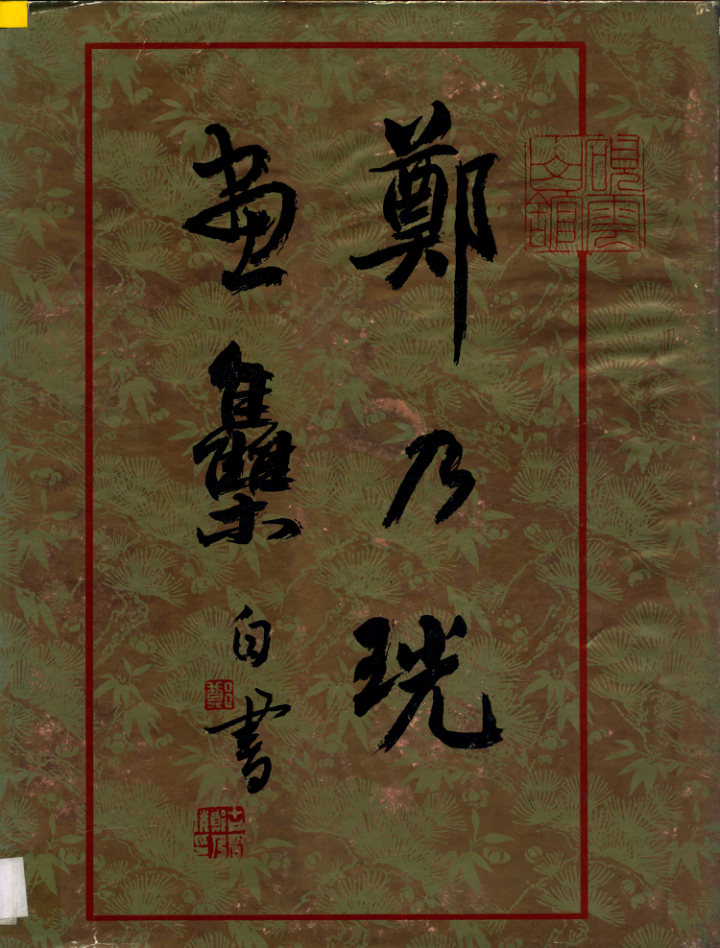 鄭乃珖
画集
自書